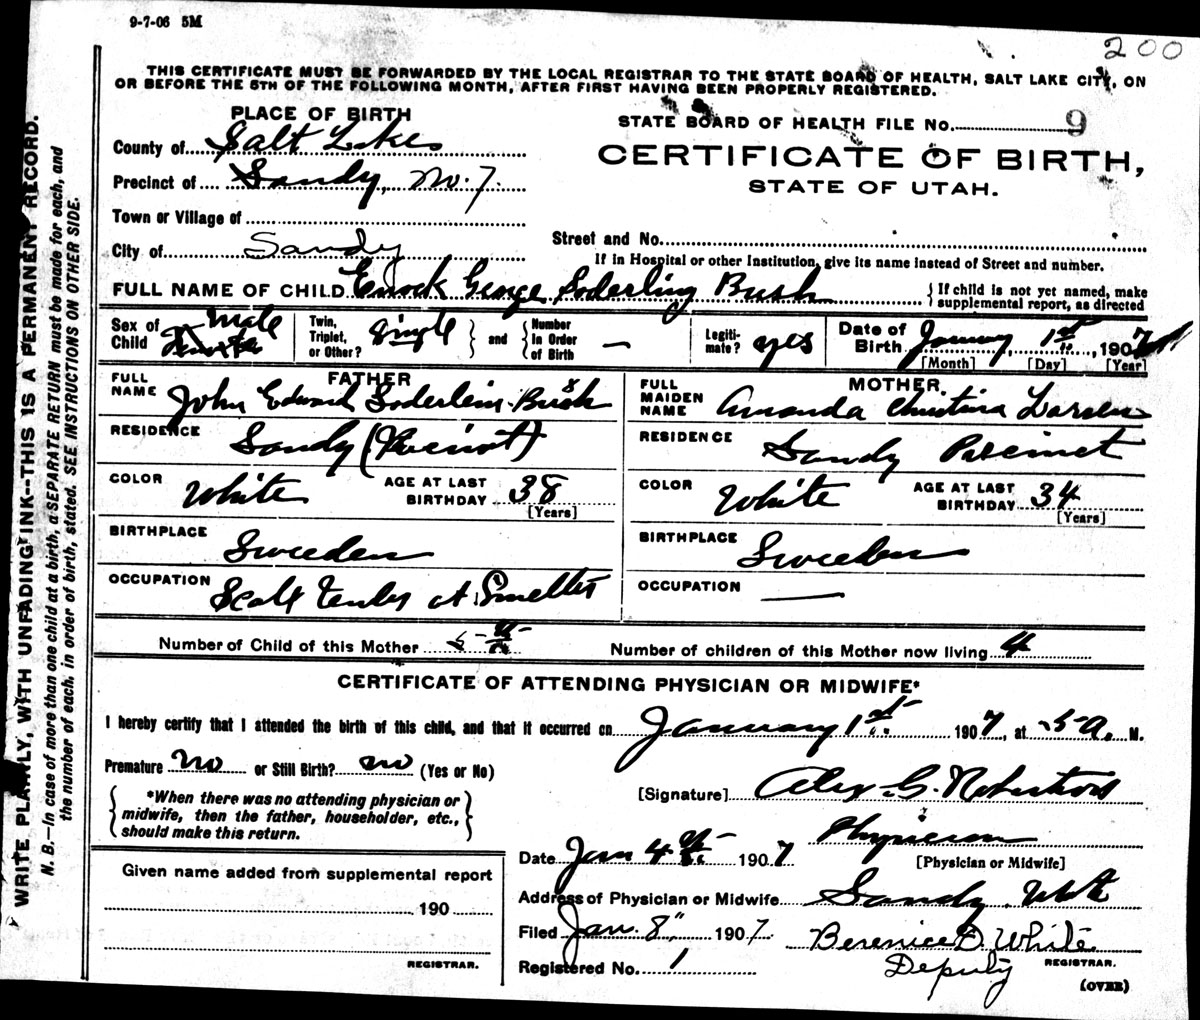 9-7-06 5M
200
THIS CERTIFICATE MUST BE FORWARDED BY THE LOCAL REGISTRAR TO THE STATE BOARD OF HEALTH, SALT LAKE CITY, ON
OR BEFORE THE 5TH OF THE FOLLOWING MONTH, AFTER FIRST HAVING BEEN PROPERLY REGISTERED.
PLACE OF BIRTH
County of Salt Lake
Precinct of Sandy, No. 7.
Town or Village of
City of Sandy
STATE BOARD OF HEALTH FILE No. 9
CERTIFICATE OF BIRTH,
STATE OF UTAH.
Street and No.
If in Hospital or other Institution, give its name instead of Street and number.
FULL NAME OF CHILD Enock George Soderling Bush
If child is not yet named, make
supplemental report, as directed
Sex of Child Male
Twin, Triplet, or Other? Single
and Number In Order of Birth —
Legitimate? yes
Date of Birth January 1st 1907
[Month] [Day] [Year]
FATHER
FULL NAME John Edward Soderlein-Bush
RESIDENCE Sandy (Precinct)
COLOR White AGE AT LAST BIRTHDAY 38
[Years]
BIRTHPLACE Sweeden
OCCUPATION Scale Tender at Smelter
MOTHER
FULL MAIDEN NAME Amanda Christina Larsen
RESIDENCE Sandy Precinct
COLOR White AGE AT LAST BIRTHDAY 34
[Years]
BIRTHPLACE Sweeden
OCCUPATION —
Number of Child of this Mother 5th
Number of children of this Mother now living 4
CERTIFICATE OF ATTENDING PHYSICIAN OR MIDWIFE*
I hereby certify that I attended the birth of this child, and that it occurred on January 1st 1907, at 5 a. M.
Premature no or Still Birth? no (Yes or No)
*When there was no attending physician or
midwife, then the father, householder, etc.,
should make this return.
[Signature] Alex. G. Robertson
Physician
[Physician or Midwife]
Date Jan 4th 1907
Address of Physician or Midwife Sandy Utah
Filed Jan. 8" 1907. Berenice D. White
REGISTRAR.
Deputy
Registered No. 1
(OVER)
Given name added from supplemental report
190
REGISTRAR.
WRITE PLAINLY, WITH UNFADING INK--THIS IS A PERMANENT RECORD.
N. B.—In case of more than one child at a birth, a SEPARATE RETURN must be made for each, and
the number of each, in order of birth, stated. SEE INSTRUCTIONS ON OTHER SIDE.